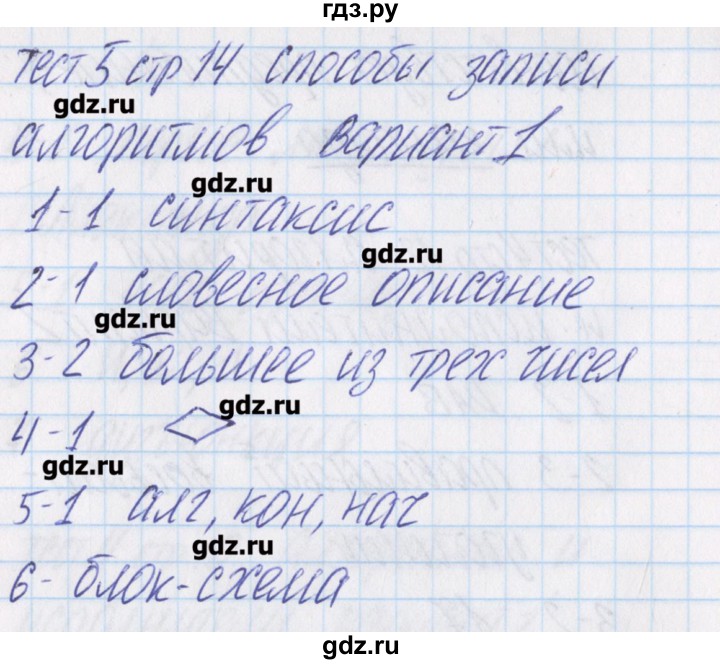 гдз.ру
тест 5 стр 14 способы записи
gdz.ru
алгоритмов вариант 1
gdz.ru
1-1 синтаксис
gdz.ru
2-1 словесное описание
gdz.ru
3-2 большее из трех чисел
gdz.ru
4-1
gdz.ru
5-1 алг, кон, нач
gdz.ru
6- блок-схема
gdz.ru